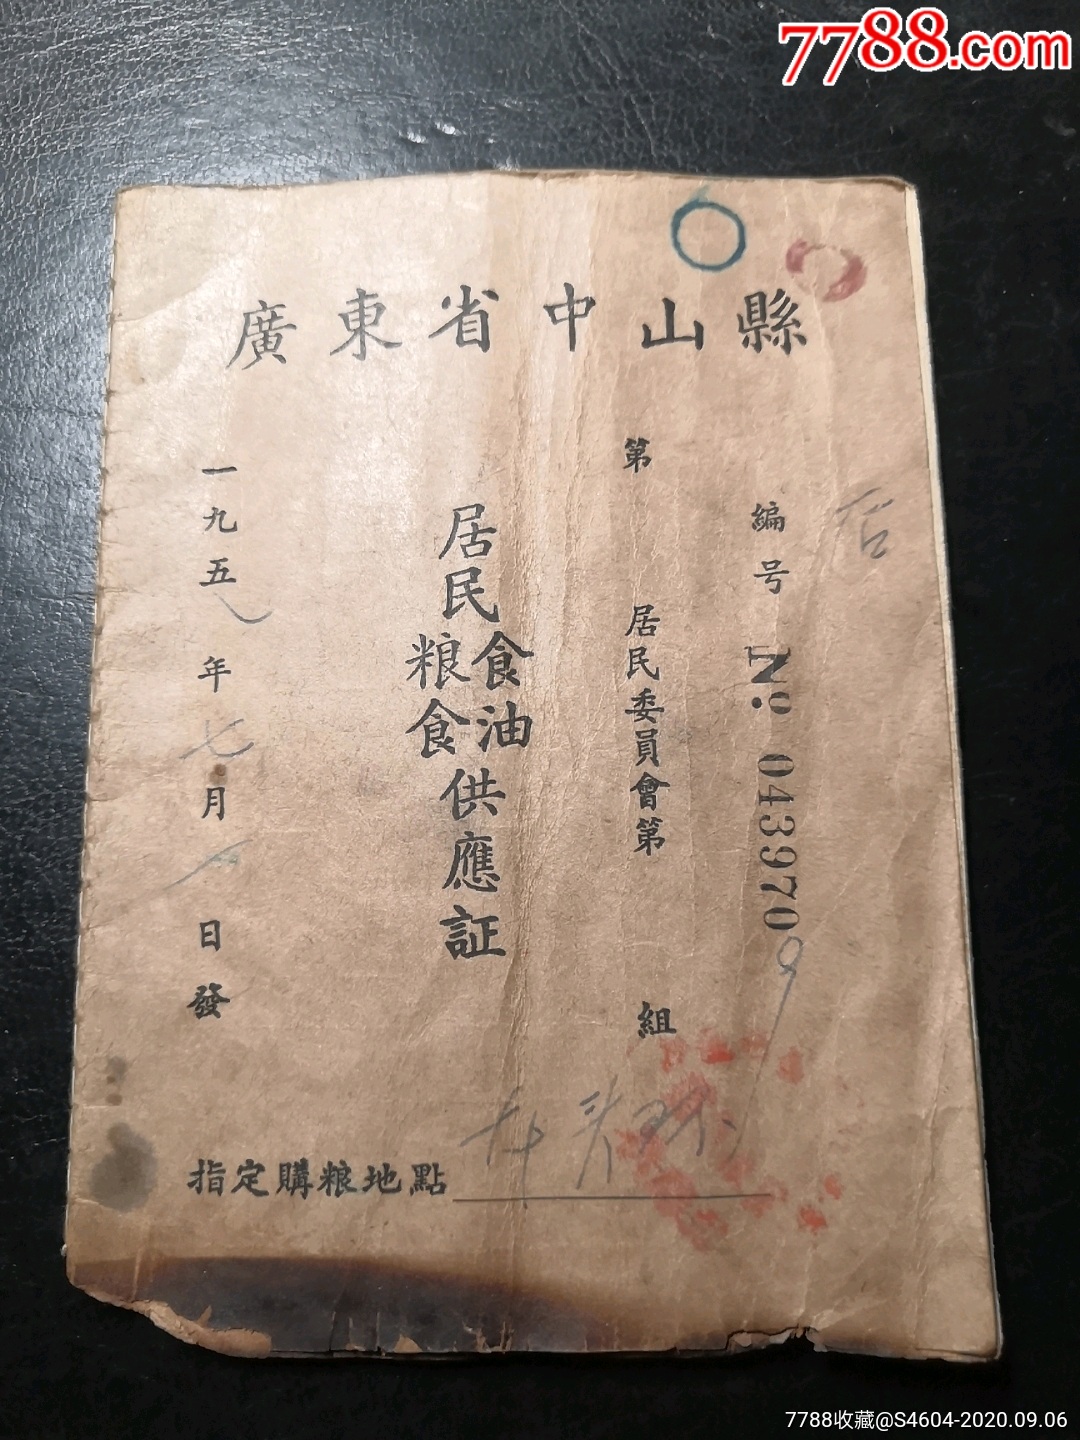 7788.com
廣東省中山縣
編号 Nº 043970
第 居民委員會第 組
居民粮食食油供應証
一九五八年七月一日發
指定購粮地點
7788收藏@S4604-2020.09.06